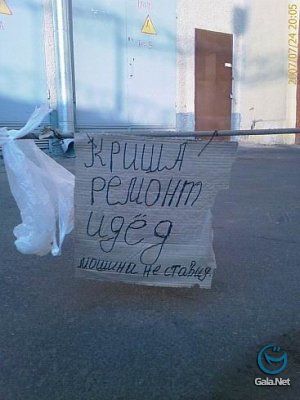 2007/07/24 20:05
КРИША
РЕМОНТ
ИДЁД
мошини не ставид
Gala.Net